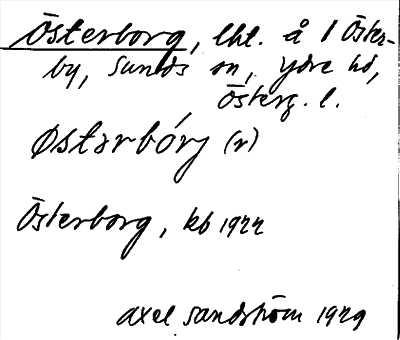 Österborg, lht. å 1 Öster-
by, Sunds sn, Ydre hd,
Österg. l.
Østarbórj (r)
Österborg, kb 1922
Axel Sandström 1929